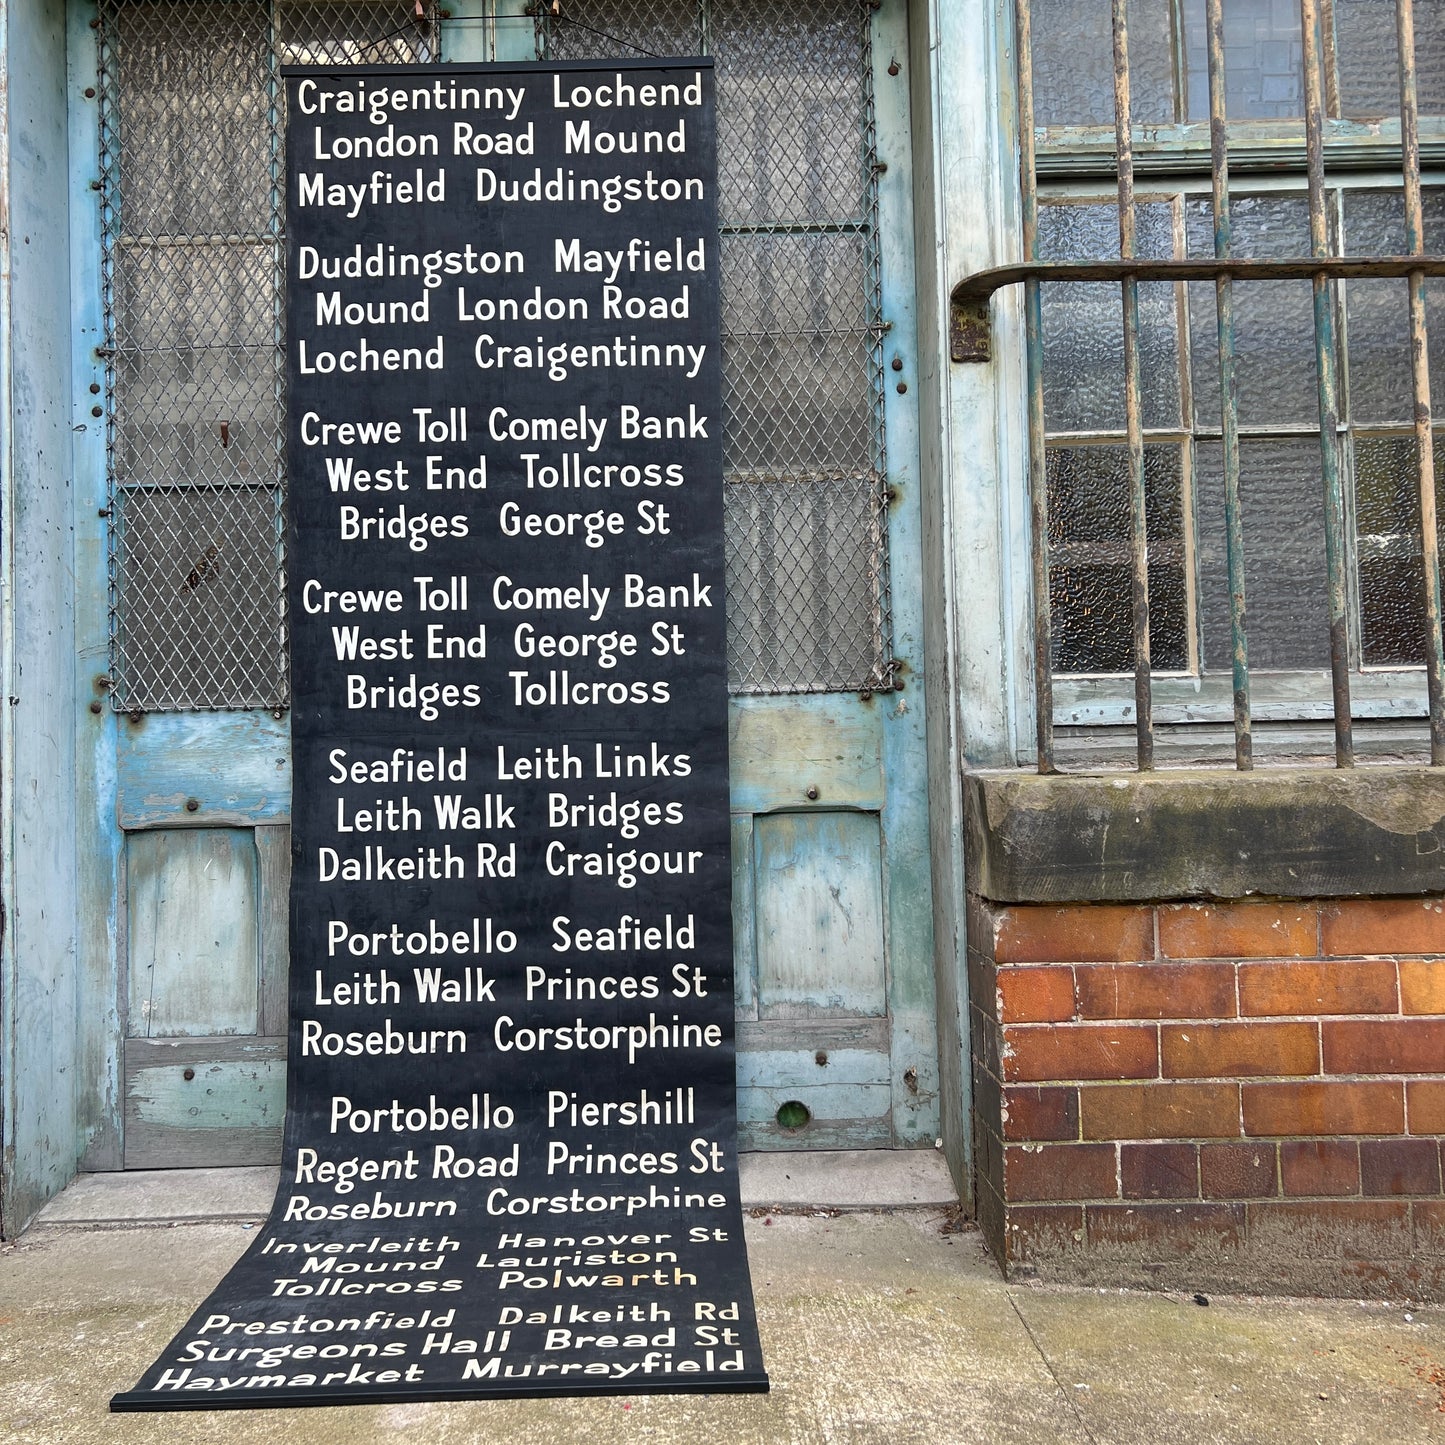 Craigentinny Lochend
London Road Mound
Mayfield Duddingston
Duddingston Mayfield
Mound London Road
Lochend Craigentinny
Crewe Toll Comely Bank
West End Tollcross
Bridges George St
Crewe Toll Comely Bank
West End George St
Bridges Tollcross
Seafield Leith Links
Leith Walk Bridges
Dalkeith Rd Craigour
Portobello Seafield
Leith Walk Princes St
Roseburn Corstorphine
Portobello Piershill
Regent Road Princes St
Roseburn Corstorphine
Inverleith Hanover St
Mound Lauriston
Tollcross Polwarth
Prestonfield Dalkeith Rd
Surgeons Hall Bread St
Haymarket Murrayfield